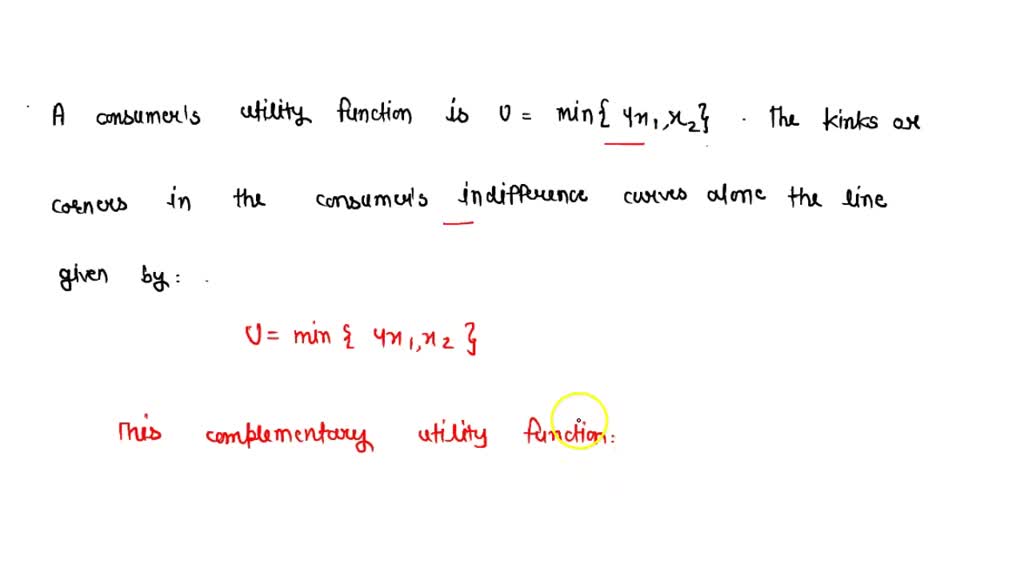 A consumer's utility function is U = min{ 4x1, x2} . The kinks are
corners in the consumer's indifference curves alone the line
given by:
U = min { 4x1, x2 }
This complementary utility function: